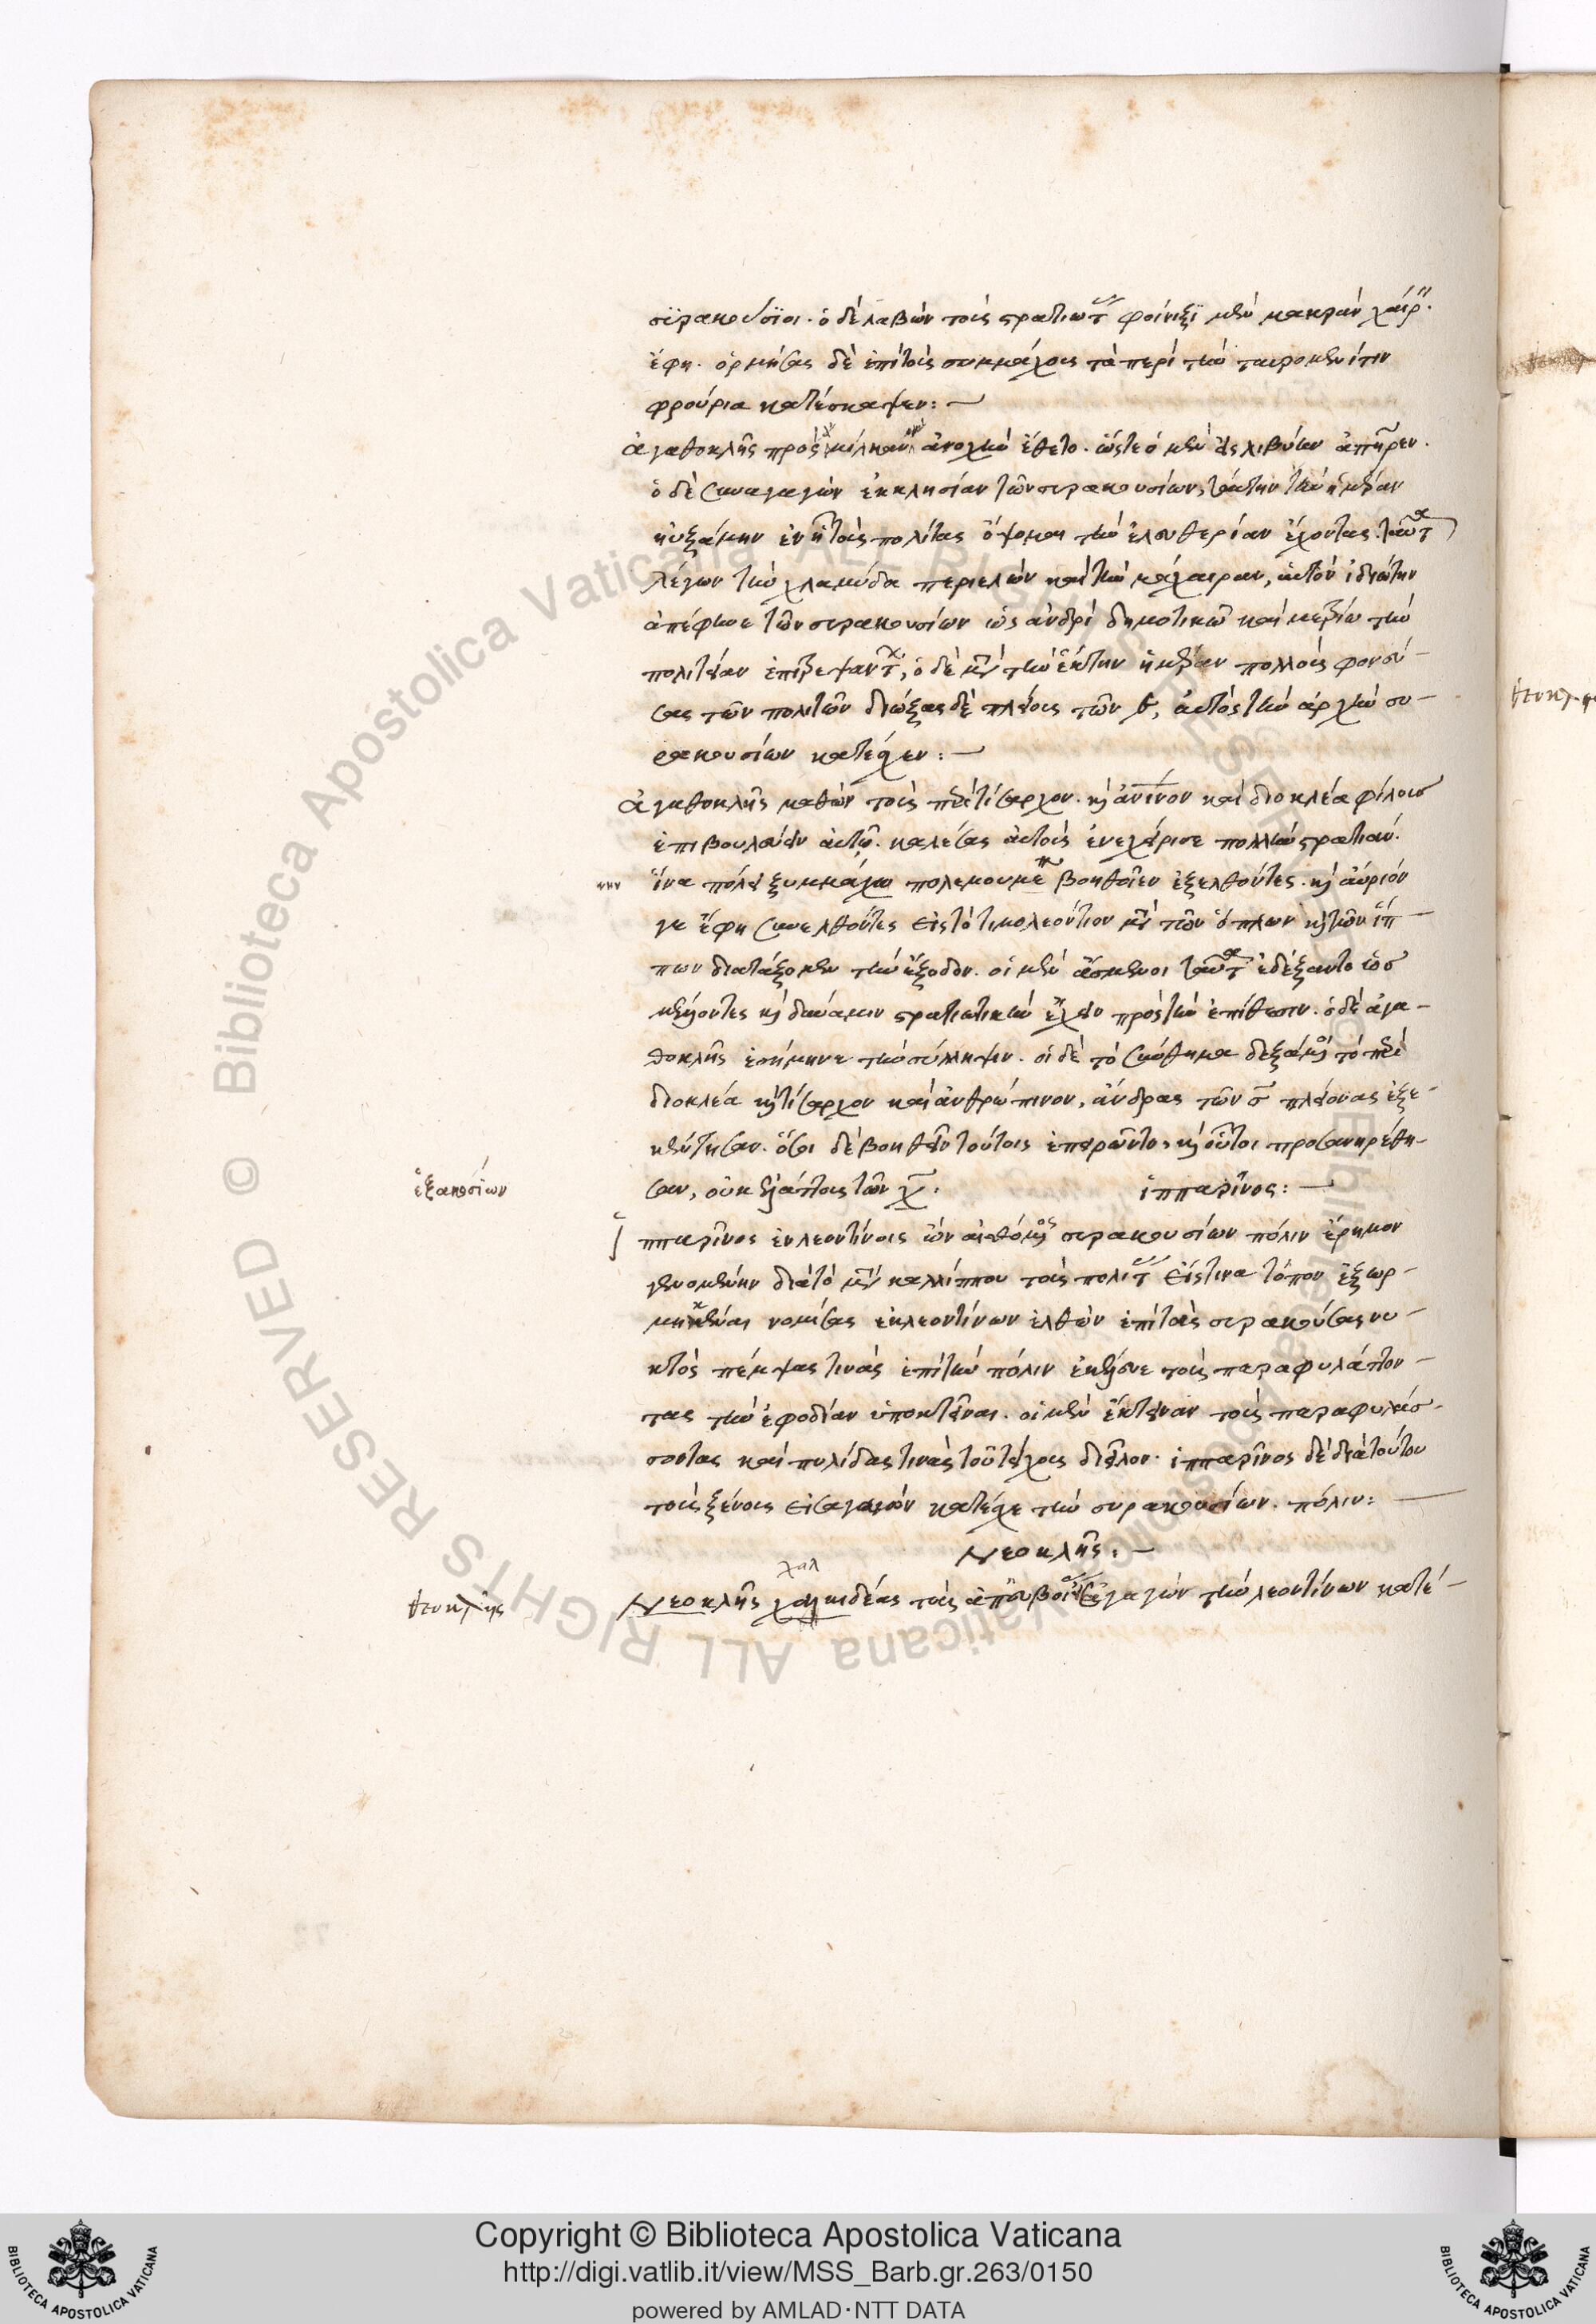 σϊρακούσϊοι. ὁ δὲ λαβὼν τοὺς στρατιώτ φοίνιξϊ μὲν μακρὰν χαίρ.
ἔφη. ὁρμήσας δὲ ἐπὶ τοὺς συμμάχους τὰ περὶ τὴν ταυρομενίτιν
φρούρια κατέσκαψεν:—
ἀγαθοκλῆς πρὸς ἀνοχὴν ἔθετο. ὥστε ὁ μὲν εἰς λιβύην ἀπῆρεν.
ὁ δὲ συναγαγὼν ἐκκλησίαν τῶν συρακουσίων, ταύτην τὴν ἡμέραν
ηὐξάμην ἐν ᾗ τοὺς πολίτας ὄψομαι τὴν ἐλευθερίαν ἔχοντας. ταῦτα
λέγων τὴν χλαμύδα περιελὼν καὶ τὴν μάχαιραν, αὑτὸν ἰδιώτην
ἀπέφηνε τῶν συρακουσίων ὡς ἀνδρὶ δημοτικῶ καὶ μετρίω τὴν
πολιτείαν ἐπιτρεψάντ, ὁ δὲ μετὰ τὴν ἕκτην ἡμέραν πολλοὺς φονεύ-
σας τῶν πολιτῶν διώξας δὲ πλείους τῶν , αὐτὸς τὴν ἀρχὴν συ-
ρακουσίων κατέσχεν:—
ἀγαθοκλῆς μαθὼν τοὺς περὶ τίσαρχον. καὶ ἀνῖνον καὶ διοκλέα φίλους
ἐπιβουλεύειν αὐτῶ. καλέσας αὐτοὺς ἐνεχείρισε πολλὴν στρατιάν.
ἵνα πόλει ξυμμάχω πολεμουμένη βοηθοῖεν ἐξελθόντες. καὶ αὔριόν
γε ἔφη συνελθόντες εἰς τὸ τιμολεόντιον μετὰ τῶν ὅπλων καὶ τῶν ἵπ-
πων διατάξομεν τὴν ἔξοδον. οἱ μὲν ἄσμενοι ταῦτα ἐδέξαντο ὡς
μέλλοντες καὶ δύναμιν στρατιωτικὴν ἔχειν πρὸς τὴν ἐπίθεσιν. ὁ δὲ ἀγα-
θοκλῆς ἐσήμηνε τὴν σύλληψιν. οἱ δὲ τὸ σύνθημα δεξάμενοι τὸ περὶ
διοκλέα καὶ τίσαρχον καὶ ἀνθρώπινον, ἄνδρας τῶν σ πλείονας ἐξε-
κέντησαν. ὅσοι δὲ βοηθεῖν τούτοις ἐπειρῶντο, καὶ οὗτοι προσανηρέθη-
ἑξακοσίων
σαν, οὐκ ἐλάττους τῶν χ. ἱππαρῖνος:—
ἱππαρῖνος ἐν λεοντίνοις ὢν αἰσθόμενος συρακουσίων πόλιν ἔρημον
γενομένην διὰ τὸ μετὰ καλλίππου τοὺς πολίτ εἴς τινα τόπον ἐξωρ-
μηκέναι νομίσας ἐκ λεοντίνων ἐλθὼν ἐπὶ τὰς συρακούσας νυ-
κτὸς πέμψας τινὰς ἐπὶ τὴν πόλιν ἐκέλευσε τοὺς παραφυλάττον-
τας τὴν ἐφοδίαν ὑποκτεῖναι. οἱ μὲν ἔκτειναν τοὺς παραφυλάσ-
σοντας καὶ πυλίδας τινὰς τοῦ τείχους διεῖλον. ἱππαρῖνος δὲ διὰ τούτου
τοὺς ξένους εἰσαγαγὼν κατέσχε τὴν συρακουσίων. πόλιν:—
Νεοκλῆς:—
θευκλῆς
χαλ
Νεοκλῆς χαλκιδέας τοὺς ἀπ' εὐβοίας ἀγαγὼν τὴν λεοντίνων κατέ-
Copyright © Biblioteca Apostolica Vaticana
http://digi.vatlib.it/view/MSS_Barb.gr.263/0150
powered by AMLAD·NTT DATA